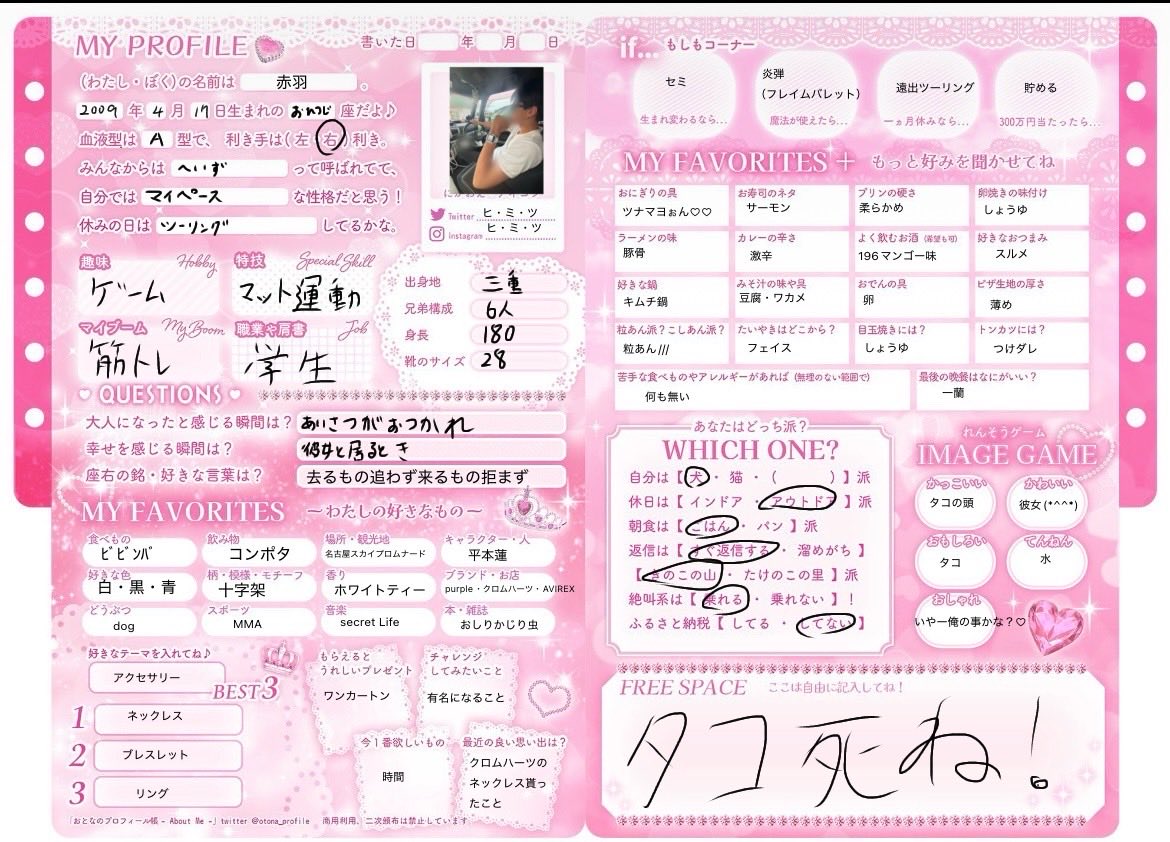 MY PROFILE
書いた日 年 月 日
(わたし・ぼく)の名前は 赤羽 。
2009 年 4 月 17 日生まれの おひつじ 座だよ♪
血液型は A 型で、利き手は(左・右)利き。
みんなからは へいず って呼ばれてて、
自分では マイペース な性格だと思う!
休みの日は ツーリング してるかな。
Twitter ヒ・ミ・ツ
Instagram ヒ・ミ・ツ
趣味 Hobby
ゲーム
特技 Special Skill
マット運動
マイブーム My Boom
筋トレ
職業や肩書 Job
学生
出身地 三重
兄弟構成 6人
身長 180
靴のサイズ 28
QUESTIONS
大人になったと感じる瞬間は? あいさつがおつかれ
幸せを感じる瞬間は? 彼女と居るとき
座右の銘・好きな言葉は? 去るもの追わず来るもの拒まず
MY FAVORITES ~わたしの好きなもの~
食べもの ビビンバ
飲み物 コンポタ
場所・観光地 名古屋スカイプロムナード
キャラクター・人 平本蓮
好きな色 白・黒・青
柄・模様・モチーフ 十字架
香り ホワイトティー
ブランド・お店 purple・クロムハーツ・AVIREX
どうぶつ dog
スポーツ MMA
音楽 secret Life
本・雑誌 おしりかじり虫
好きなテーマを入れてね♪
アクセサリー
BEST3
1 ネックレス
2 ブレスレット
3 リング
もらえると
うれしいプレゼント
ワンカートン
チャレンジ
してみたいこと
有名になること
今1番欲しいもの
時間
最近の良い思い出は?
クロムハーツの
ネックレス貰っ
たこと
「おとなのプロフィール帳 - About Me -」twitter @otona_profile 商用利用、二次頒布は禁止しています
if... もしもコーナー
セミ
生まれ変わるなら...
炎弾
(フレイムバレット)
魔法が使えたら...
遠出ツーリング
一ヵ月休みなら...
貯める
300万円当たったら...
MY FAVORITES + もっと好みを聞かせてね
おにぎりの具 ツナマヨぉん♡♡
お寿司のネタ サーモン
プリンの硬さ 柔らかめ
卵焼きの味付け しょうゆ
ラーメンの味 豚骨
カレーの辛さ 激辛
よく飲むお酒 (希望も可) 196マンゴー味
好きなおつまみ スルメ
好きな鍋 キムチ鍋
みそ汁の味や具 豆腐・ワカメ
おでんの具 卵
ピザ生地の厚さ 薄め
粒あん派?こしあん派? 粒あん///
たいやきはどこから? フェイス
目玉焼きには? しょうゆ
トンカツには? つけダレ
苦手な食べものやアレルギーがあれば (無理のない範囲で) 何も無い
最後の晩餐はなにがいい? 一蘭
あなたはどっち派?
WHICH ONE?
自分は【 犬 ・ 猫 ・( )】派
休日は【 インドア ・ アウトドア 】派
朝食は【 ごはん ・ パン 】派
返信は【 すぐ返信する ・ 溜めがち 】
【 きのこの山 ・ たけのこの里 】派
絶叫系は【 乗れる ・ 乗れない 】!
ふるさと納税【 してる ・ してない 】
れんそうゲーム
IMAGE GAME
かっこいい タコの頭
かわいい 彼女(*^^*)
おもしろい タコ
てんねん 水
おしゃれ いやー俺の事かな?♡
FREE SPACE ここは自由に記入してね!
タコ死ね!